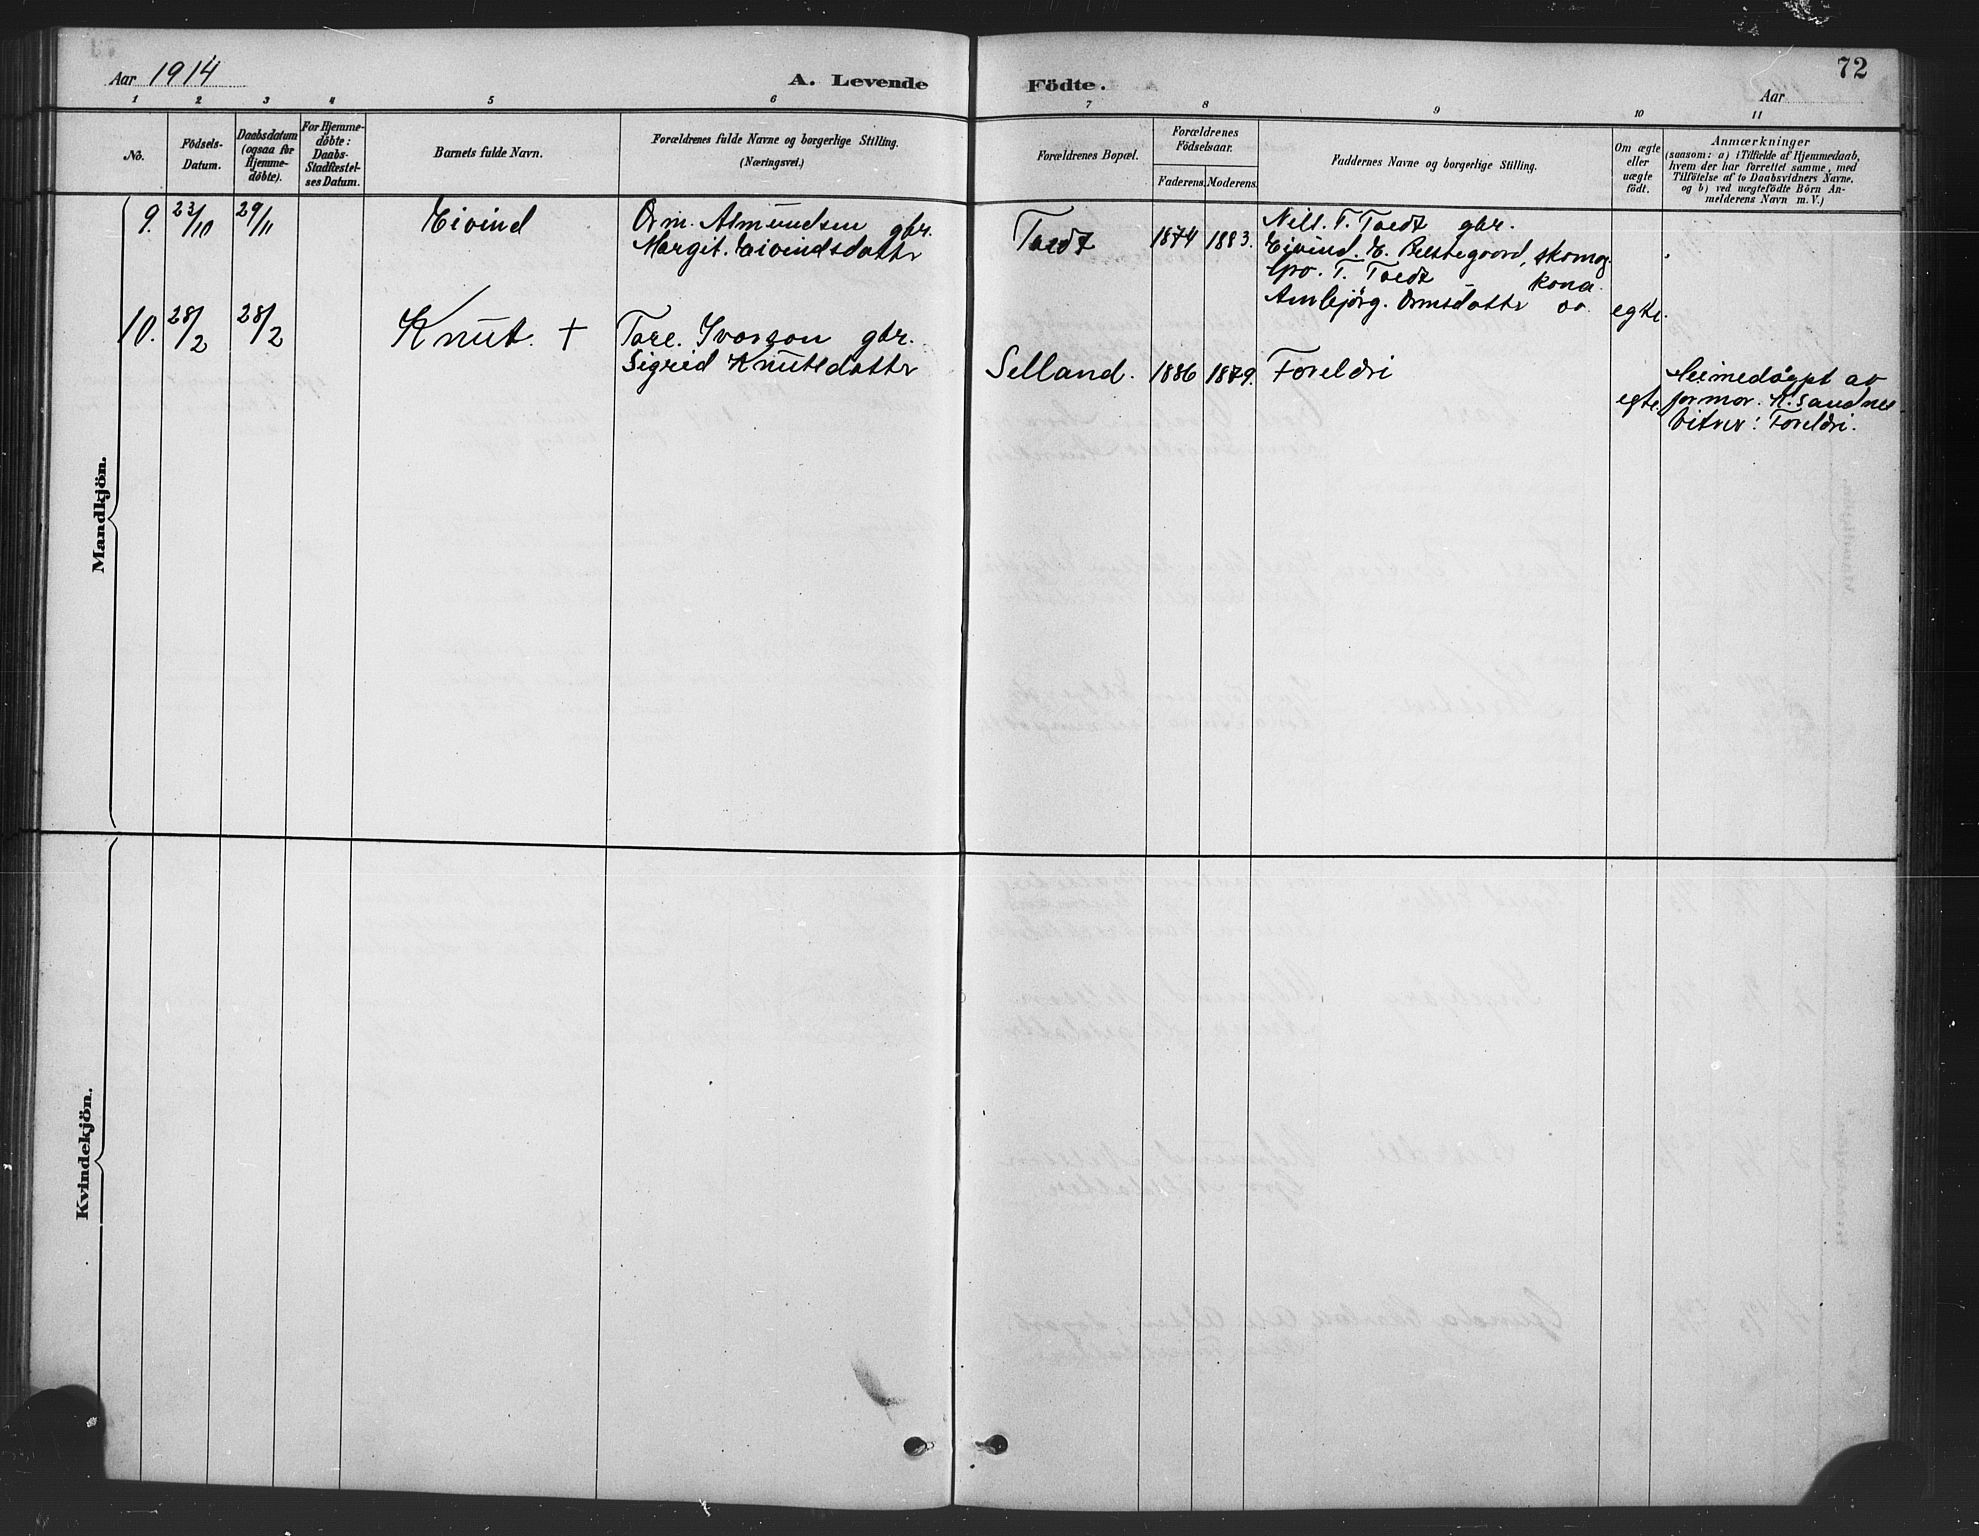 72
Aar 1914
A. Levende Födte.
Aar
1 2 3 4 5 6 7 8 9 10 11
No.
Födsels-
Datum.
Daabsdatum
(ogsaa for
Hjemme-
döbte).
For Hjemme-
döbte:
Daabs-
Stadfæstel-
ses Datum.
Barnets fulde Navn.
Forældrenes fulde Navne og borgerlige Stilling.
(Næringsvei.)
Forældrenes Bopæl.
Forældrenes
Födselsaar.
Faderens.
Moderens.
Faddernes Navne og borgerlige Stilling.
Om ægte
eller
uægte
födt.
Anmærkninger
(saasom: a) i Tilfælde af Hjemmedaab,
hvem der har forrettet samme, med
Tilföielse af to Daabsvidners Navne,
og b) ved uægtefödte Börn An-
melderens Navn m. V.)
Mandkjön.
9. 23/10 29/11 Eivind
Orm. Asmundsen gbr.
Margit. Eivindsdottr
Tvedt 1874 1883.
Nils. T. Tvedt gbr.
Eivind. E. Prestegaord, skomag
Gro. T. Tvedt kona.
Ambjörg. Ormsdottr
egte.
10. 28/2 28/2 Knut. +
Tore. Ivarson gbr.
Sigrid Knutsdottr
Selland. 1886 1879. Foreldri
egte.
Heimedöypt av
formor. K. Sandnes
Vitner: Foreldri.
Kvindekjön.